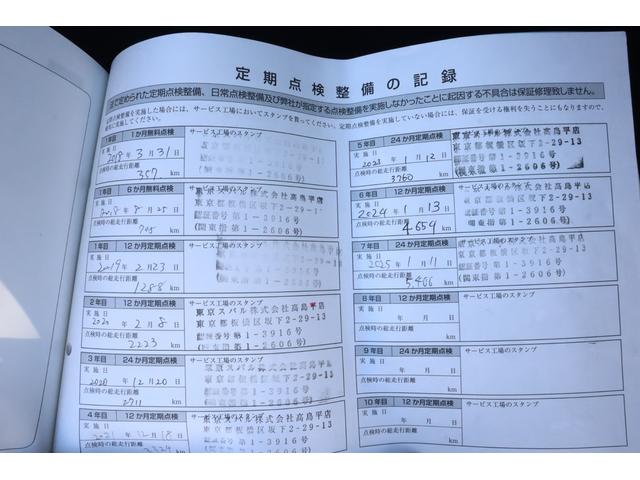 定期点検整備の記録
で定められた定期点検整備、日常点検整備及び弊社が指定する点検整備を実施しなかったことに起因する不具合は保証修理致しません。
定期点検整備を実施した場合には、サービス工場においてスタンプを貰ってください。定期点検整備を実施していない場合には、保証を受ける権利を失うこともありますので、
確実に実施してください。
1年目 1か月無料点検 サービス工場のスタンプ
実施日 2018年3月31日
点検時の総走行距離
357 km
1年目 6か月無料点検 サービス工場のスタンプ
東京スバル株式会社高島平店
東京都板橋区坂下2-29-13
認証番号第1-3916号
(関東指第1-2606号)
実施日 2018年8月25日
点検時の総走行距離
705 km
1年目 12か月定期点検 サービス工場のスタンプ
実施日 2019年2月23日
点検時の総走行距離
1288 km
2年目 12か月定期点検 サービス工場のスタンプ
東京スバル株式会社高島平店
東京都板橋区坂下2-29-13
認証番号第1-3916号
(関東指第1-2606号)
実施日 2020年2月8日
点検時の総走行距離
2223 km
3年目 24か月定期点検 サービス工場のスタンプ
東京スバル株式会社高島平店
東京都板橋区坂下2-29-13
実施日 2020年12月20日
点検時の総走行距離
2711 km
4年目 12か月定期点検 サービス工場のスタンプ
東京スバル株式会社高島平店
東京都板橋区坂下2-29-13
認証番号第1-3916号
(関東指第1-2606号)
実施日 2021年12月18日
点検時の総走行距離
km
5年目 24か月定期点検 サービス工場のスタンプ
東京スバル株式会社高島平店
東京都板橋区坂下2-29-13
認証番号第1-3916号
(関東指第1-2606号)
実施日 2023年1月12日
点検時の総走行距離
3760 km
6年目 12か月定期点検 サービス工場のスタンプ
東京スバル株式会社高島平店
東京都板橋区坂下2-29-13
認証番号第1-3916号
(関東指第1-2606号)
実施日 2024年1月13日
点検時の総走行距離
4654 km
7年目 24か月定期点検 サービス工場のスタンプ
東京スバル株式会社高島平店
東京都板橋区坂下2-29-13
認証番号第1-3916号
(関東指第1-2606号)
実施日 2025年1月11日
点検時の総走行距離
5,466 km
8年目 12か月定期点検 サービス工場のスタンプ
実施日 年 月 日
点検時の総走行距離
km
9年目 24か月定期点検 サービス工場のスタンプ
実施日 年 月 日
点検時の総走行距離
km
10年目 12か月定期点検 サービス工場のスタンプ
実施日 年 月 日
点検時の総走行距離
km